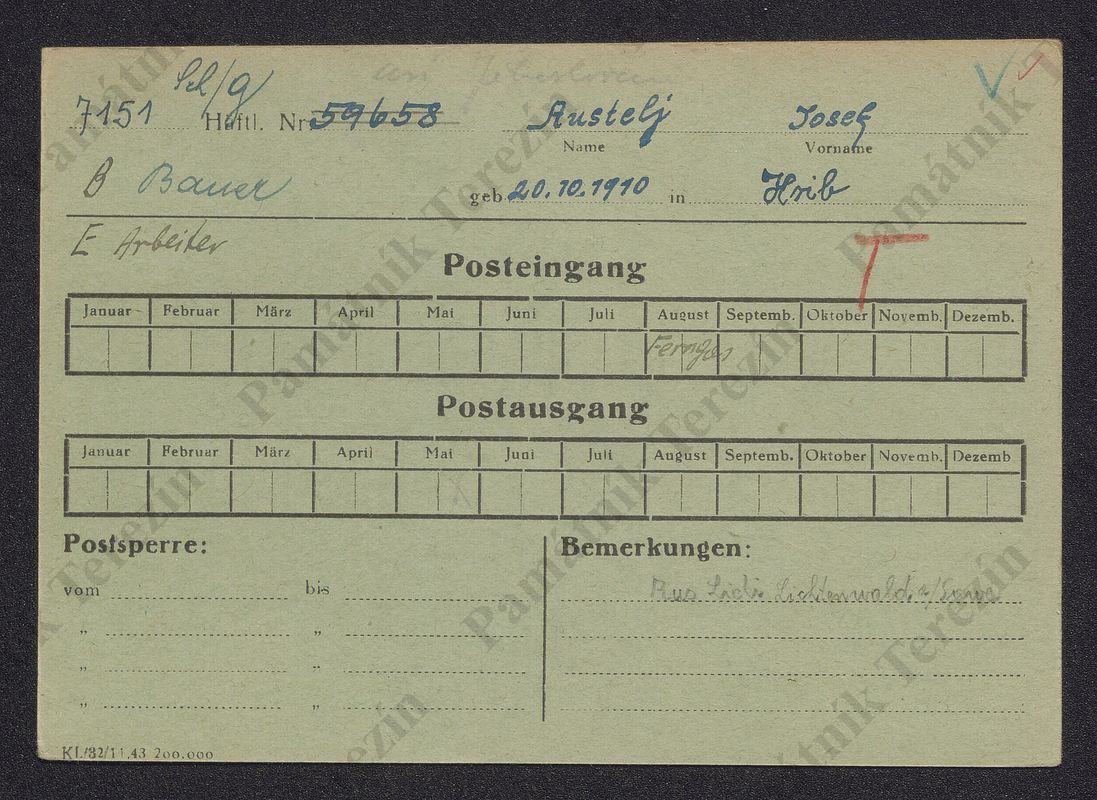 7151 Häftl. Nr 59658 Austelj Josef
Name Vorname
B Bauer geb. 20.10.1910 in Hrib
E Arbeiter
T
Posteingang
Januar Februar März April Mai Juni Juli August Septemb. Oktober Novemb. Dezemb.
Postausgang
Januar Februar März April Mai Juni Juli August Septemb. Oktober Novemb. Dezemb
Postsperre: Bemerkungen:
vom bis
Lichtenwald
" "
" "
" "
KL/32/11.43 200.000
Památník Terezín